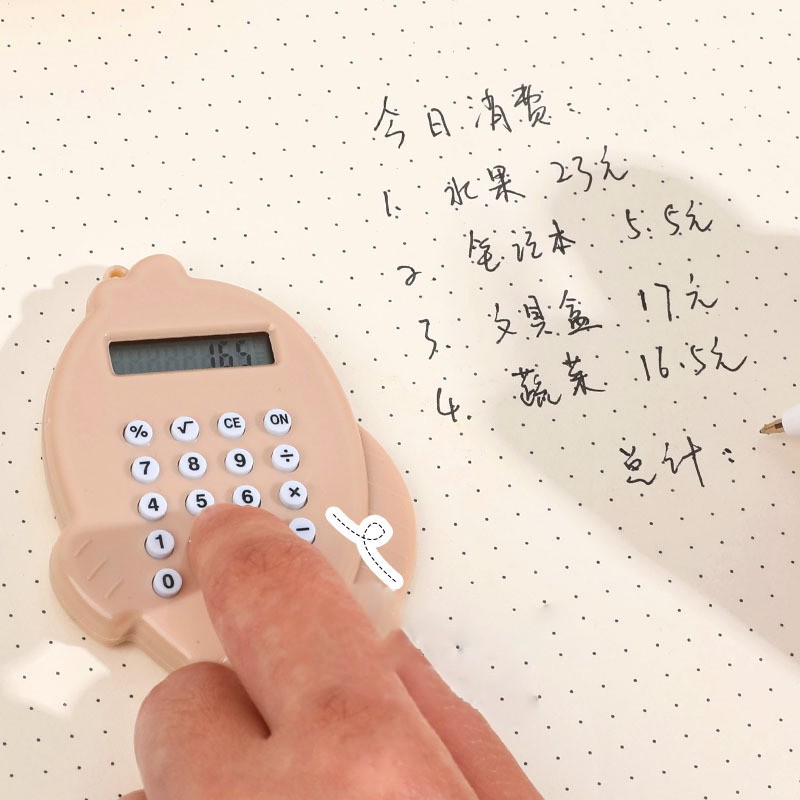 今日消费：
1. 水果 23元
2. 笔记本 5.5元
3. 文具盒 17元
4. 蔬菜 16.5元
总计：
16.5
% √ CE ON
7 8 9 ÷
4 5 6 ×
1 −
0